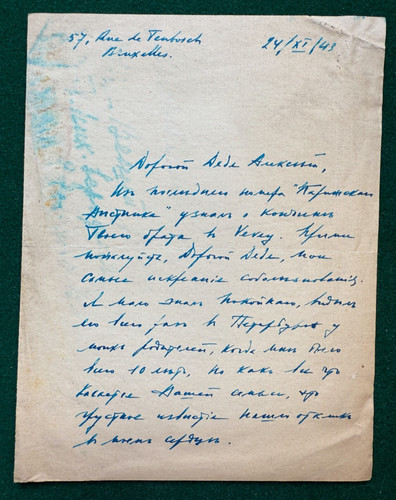 57, Rue de Tenbosch
Bruxelles.
24/XI/43
Дорогой Дядя Алексей,
Из последняго номера "Парижскаго
Вѣстника" узналъ о кончинѣ
Твоего брата въ Vevey. Прими
пожалуйста, Дорогой Дядя, мои
самыя искреннія соболѣзнованія.
Я мало зналъ Покойнаго, видѣлъ
его всего разъ въ Петербургѣ у
моихъ родителей, когда мнѣ было
всего 10 лѣтъ. Но какъ все что
касается Вашей семьи, это
грустное извѣстіе нашло откликъ
въ моемъ сердцѣ.